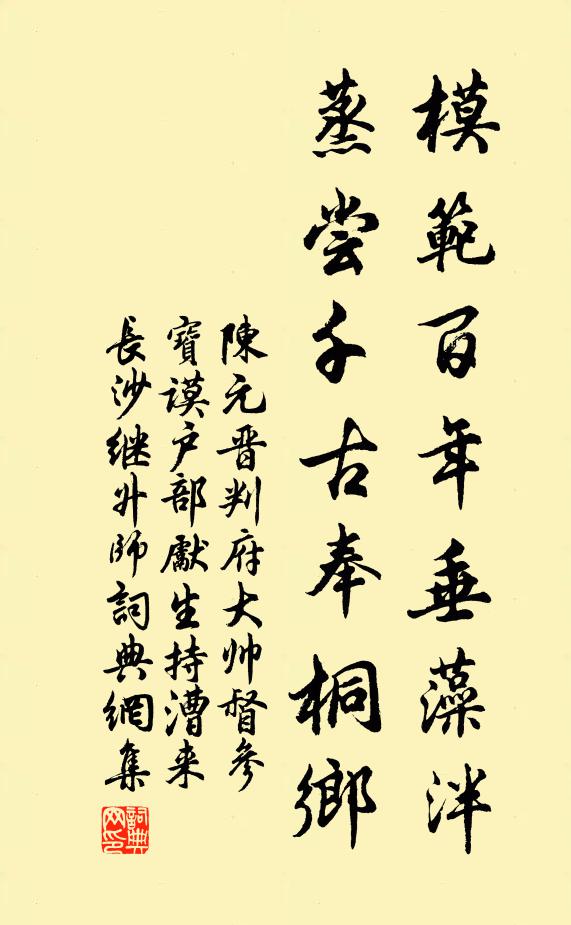 模範百年垂藻泮
蒸尝千古奉桐鄉
陳元晋判府大帅督參
寶謨户部獻生持漕来
長沙继外師詞典網集
詞典
网印